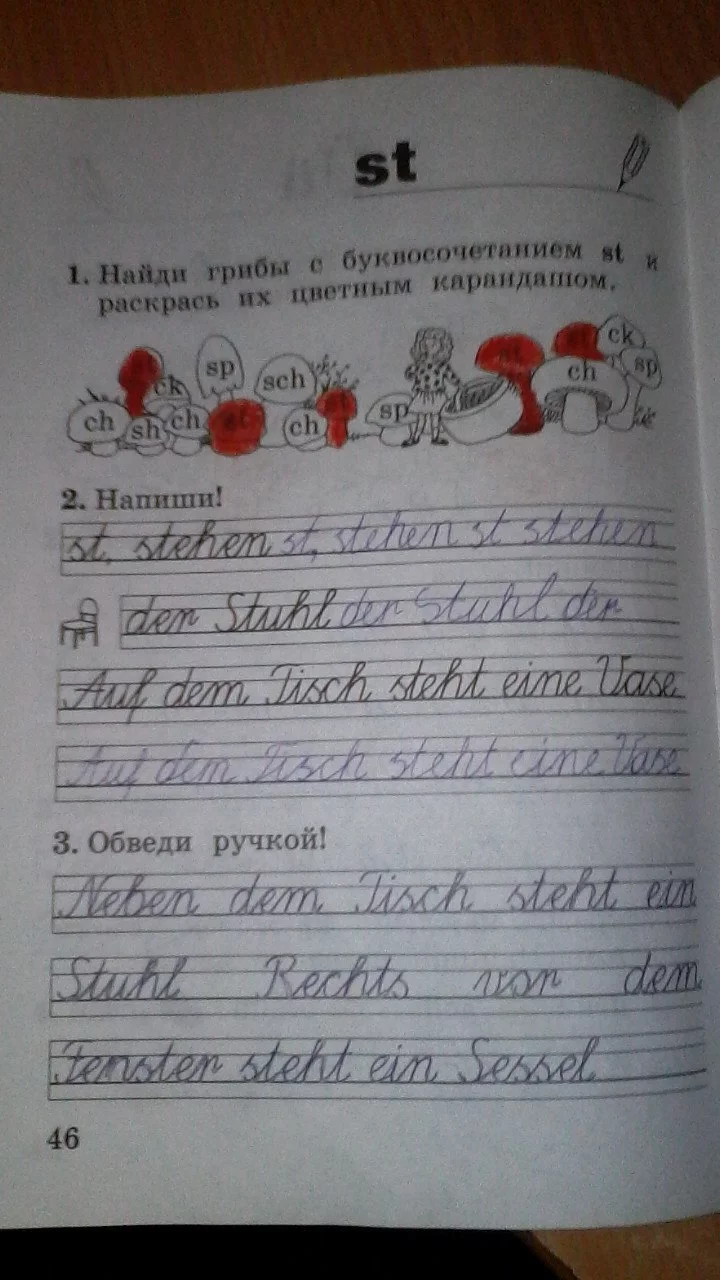 st
1. Найди грибы с буквосочетанием st и
раскрась их цветным карандашом.
st ck sp sch st st ck
ch sh ch st ch st sp ch sp
2. Напиши!
st, stehen st, stehen st stehen
der Stuhl der Stuhl der
Auf dem Tisch steht eine Vase
Auf dem Tisch steht eine Vase
3. Обведи ручкой!
Neben dem Tisch steht ein
Stuhl Rechts von dem
Fenster steht ein Sessel
46